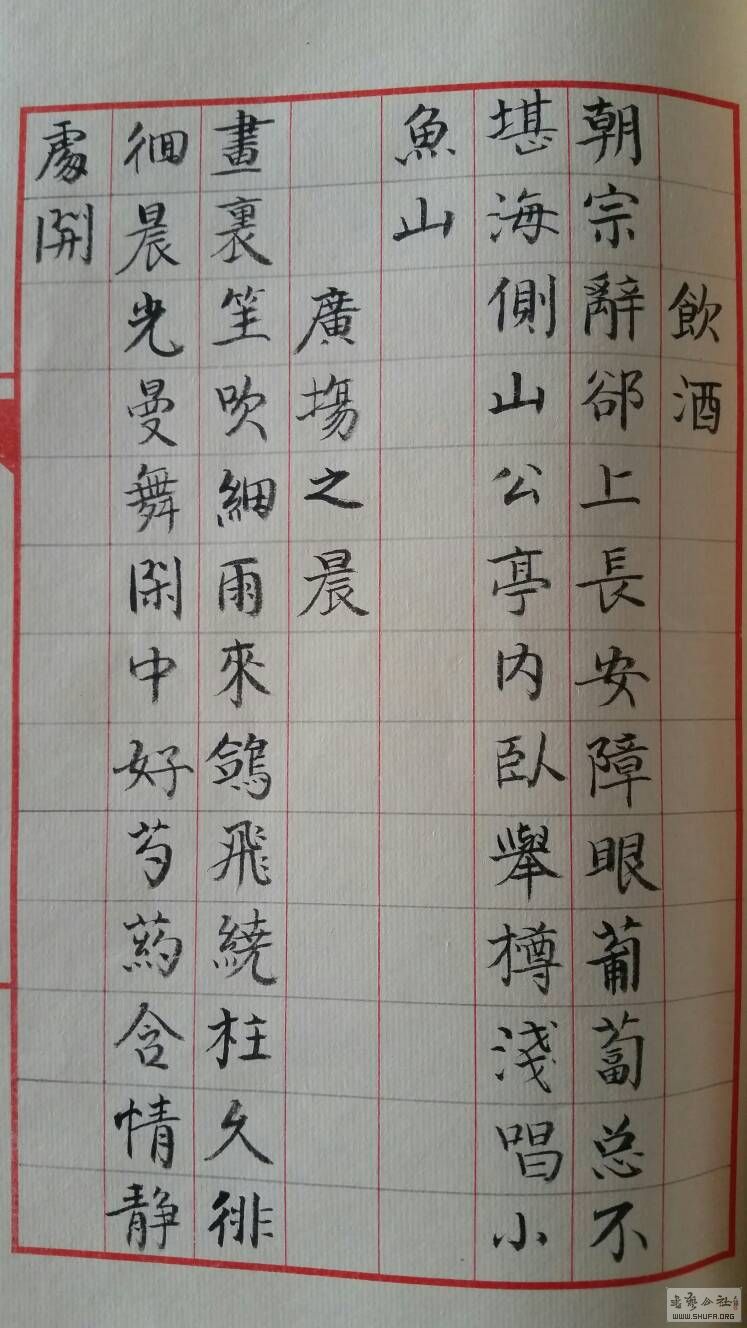 飲酒
朝宗辭郤上長安障眼葡萄总不
堪海側山公亭内臥舉樽淺唱小
魚山
廣場之晨
畫裏笙吹細雨來鴿飛繞柱久徘
徊晨光曼舞閑中好芍藥含情静
處開
书艺公社
WWW.SHUFA.ORG